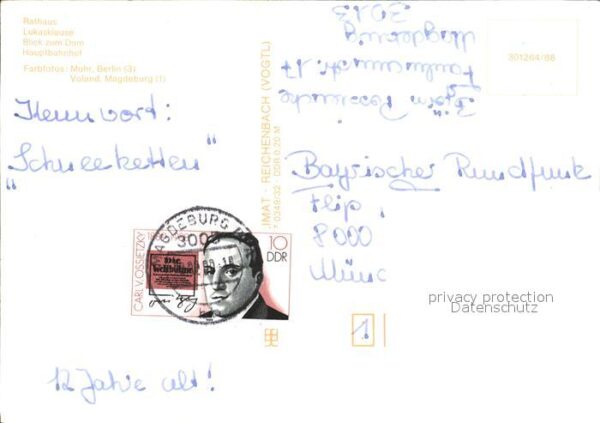 Rathaus
Lukasklause
Blick zum Dom
Hauptbahnhof
Farbfotos: Mohr, Berlin (3)
Voland, Magdeburg (1)
Kennwort:
"Schneeketten"
12 Jahre alt!
JMAT · REICHENBACH (VOGTL)
DDR 0,20 M
CARL V. OSSIETZKY
Die
Weltbühne
10
DDR
MAGDEBURG
3003
Magdeburg
3013
301264/88
Bayrischer Rundfunk
Flip
8000
Münc
1
privacy protection
Datenschutz